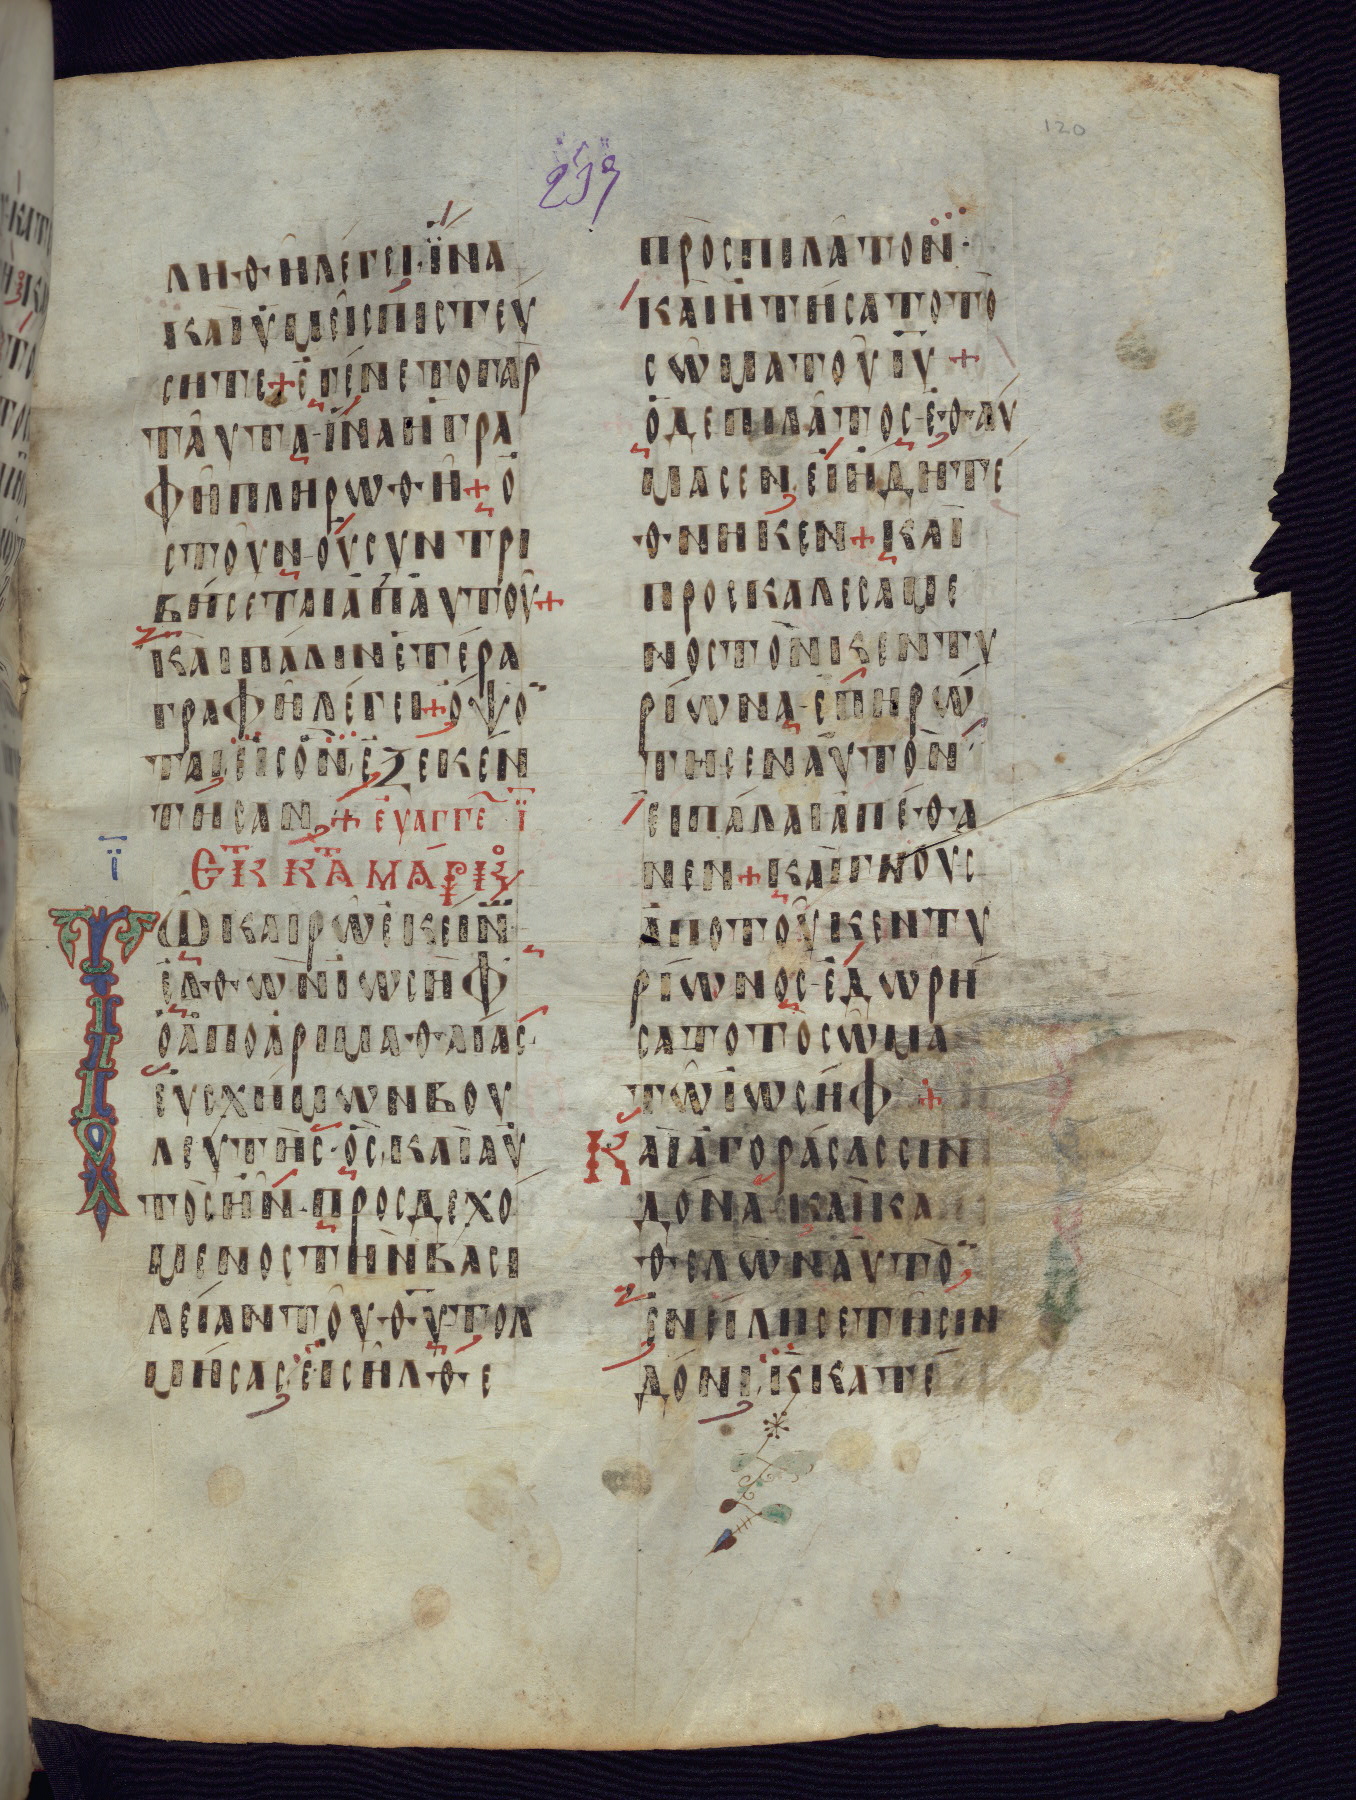 120
239
ΛΗΘΗ ΛΕΓΕΙ· ΪΝΑ
ΚΑΙ ΥΜΕΙΣ ΠΙΣΤΕΥ
ΣΗΤΕ + ΕΓΕΝΕΤΟ ΓΑΡ
ΤΑΥΤΑ· ΪΝΑ Η ΓΡΑ
ΦΗ ΠΛΗΡΩΘΗ + Ο
ΣΤΟΥΝ ΟΥ ΣΥΝΤΡΙ
ΒΗΣΕΤΑΙ ΑΠ ΑΥΤΟΥ +
ΚΑΙ ΠΑΛΙΝ ΕΤΕΡΑ
ΓΡΑΦΗ ΛΕΓΕΙ + ΟΨΟ
ΤΑΙ ΕΙΣ ΟΝ ΕΞΕΚΕΝ
ΤΗΣΑΝ + ΕΥΑΓΓΕ Ϊ
Ϊ
ΕΚ ΚΤΑ ΜΑΡΚΟ
ΤΩ ΚΑΙΡΩ ΕΚΕΙΝ
ΕΛΘΩΝ ΙΩΣΗΦ
Ο ΑΠΟ ΑΡΙΜΑΘΑΙΑΣ·
ΕΥΣΧΗΜΩΝ ΒΟΥ
ΛΕΥΤΗΣ· ΟΣ ΚΑΙ ΑΥ
ΤΟΣ ΗΝ· ΠΡΟΣΔΕΧΟ
ΜΕΝΟΣ ΤΗΝ ΒΑΣΙ
ΛΕΙΑΝ ΤΟΥ ΘΥ· ΤΟΛ
ΜΗΣΑΣ ΕΙΣΗΛΘΕ
ΠΡΟΣ ΠΙΛΑΤΟΝ·
ΚΑΙ ΗΤΗΣΑΤΟ ΤΟ
ΣΩΜΑ ΤΟΥ ΙΥ +
Ο ΔΕ ΠΙΛΑΤΟΣ· ΕΘΑΥ
ΜΑΣΕΝ ΕΙ ΗΔΗ ΤΕ
ΘΝΗΚΕΝ + ΚΑΙ
ΠΡΟΣΚΑΛΕΣΑΜΕ
ΝΟΣ ΤΟΝ ΚΕΝΤΥ
ΡΙΩΝΑ· ΕΠΗΡΩ
ΤΗΣΕΝ ΑΥΤΟΝ
ΕΙ ΠΑΛΑΙ ΑΠΕΘΑ
ΝΕΝ + ΚΑΙ ΓΝΟΥΣ
ΑΠΟ ΤΟΥ ΚΕΝΤΥ
ΡΙΩΝΟΣ· ΕΔΩΡΗ
ΣΑΤΟ ΤΟ ΣΩΜΑ
ΤΩ ΙΩΣΗΦ +
ΚΑΙ ΑΓΟΡΑΣΑΣ ΣΙΝ
ΔΟΝΑ· ΚΑΙ ΚΑ
ΘΕΛΩΝ ΑΥΤΟ
ΕΝΕΙΛΗΣΕ ΤΗ ΣΙΝ
ΔΟΝΙ, Κ ΚΑΤΕ